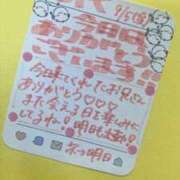 9/5(金)
今日は
ありがとう
ございます!!
今日来てくれたお兄さん
ありがとう♡♡♡
また会える日を楽しみに
してるね! 明日も
明日